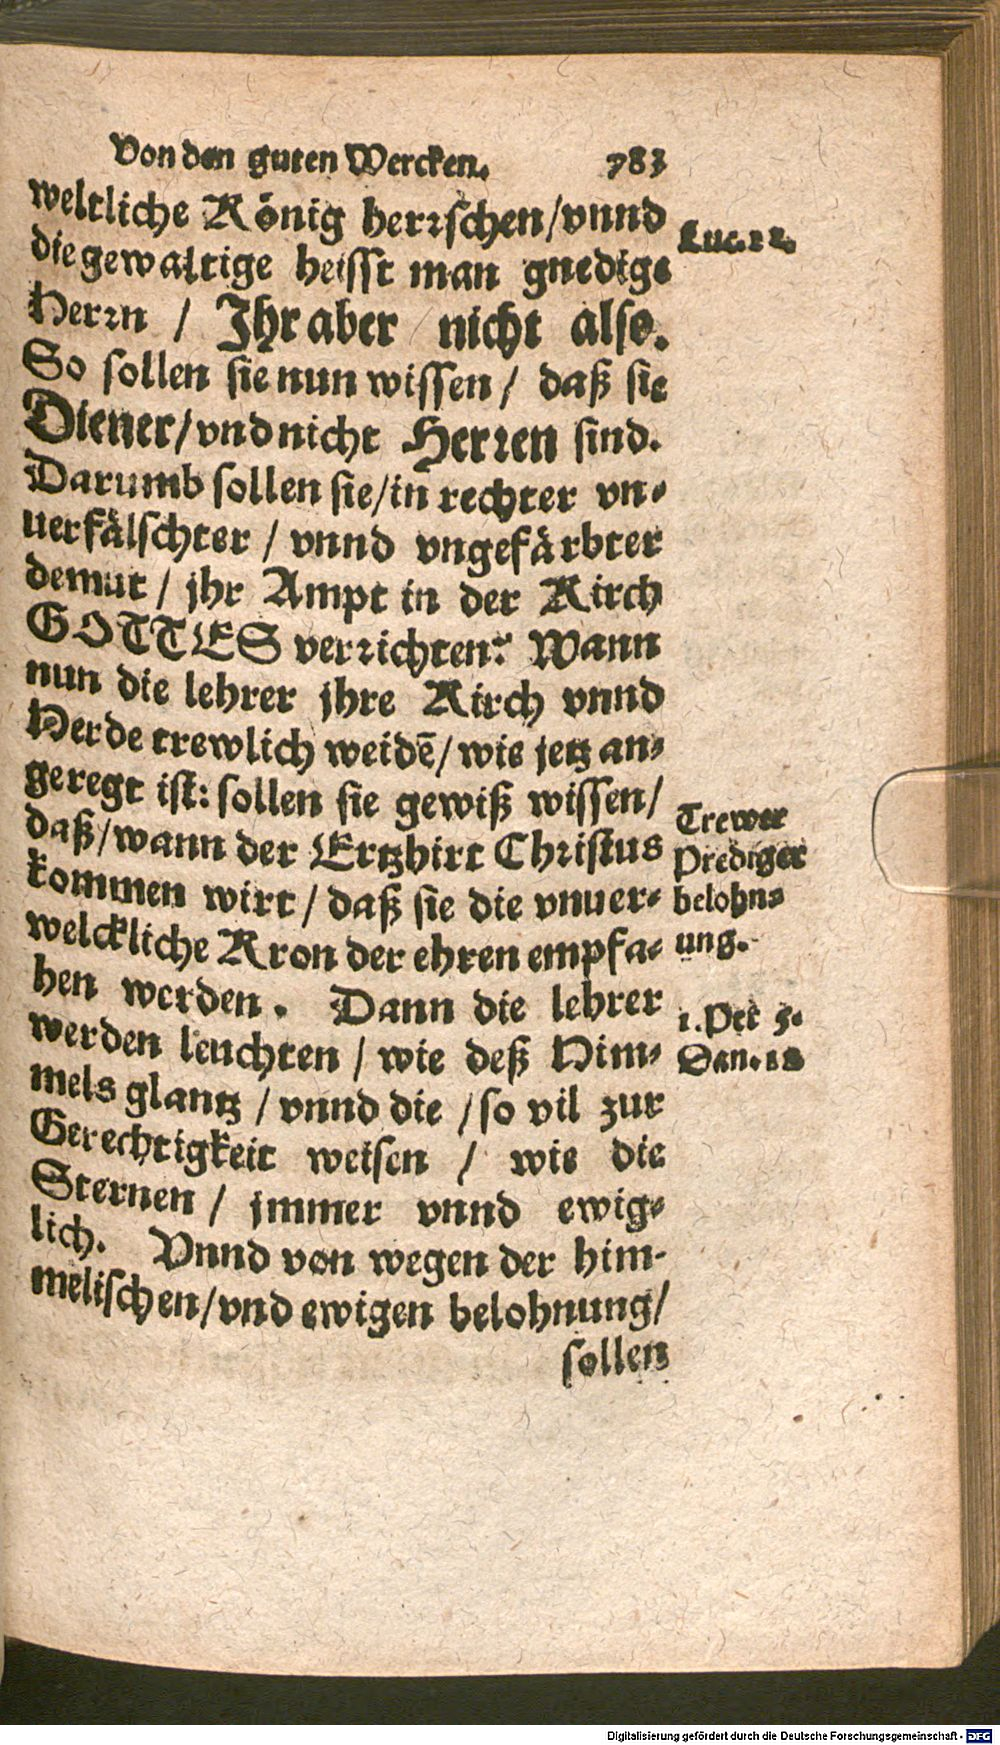 Von den guten Wercken. 783
weltliche König herrschen/vnnd
die gewaltige heisst man gnedige
Herrn / Ihr aber nicht also.
Luc. 22.
So sollen sie nun wissen / daß sie
Diener/vnd nicht Herren sind.
Darumb sollen sie/in rechter vn-
uerfälschter / vnnd vngefärbter
demut / jhr Ampt in der Kirch
GOTTES verrichten. Wann
nun die lehrer jhre Kirch vnnd
Herde trewlich weidē/ wie jetz an-
geregt ist: sollen sie gewiß wissen/
daß/wann der Ertzhirt Christus
kommen wirt / daß sie die vnuer-
welckliche Kron der ehren empfa-
hen werden. Dann die lehrer
werden leuchten / wie deß Him-
mels glantz / vnnd die / so vil zur
Gerechtigkeit weisen / wie die
Sternen / jmmer vnnd ewig-
lich. Vnnd von wegen der him-
melischen/vnd ewigen belohnung/
sollen
Trewer
Prediger
belohn-
ung.
1. Pet 5.
Dan. 12
Digitalisierung gefördert durch die Deutsche Forschungsgemeinschaft - DFG